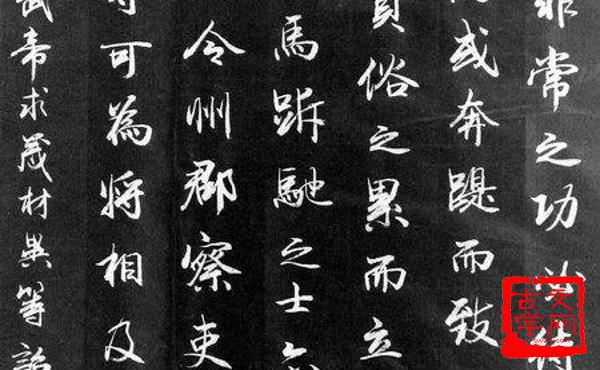 非常之功必待
馬或奔踶而致
負俗之累而立
馬跅馳之士亦
令州郡察吏
等可為將相及
武帝求茂材異等詔
古文
网